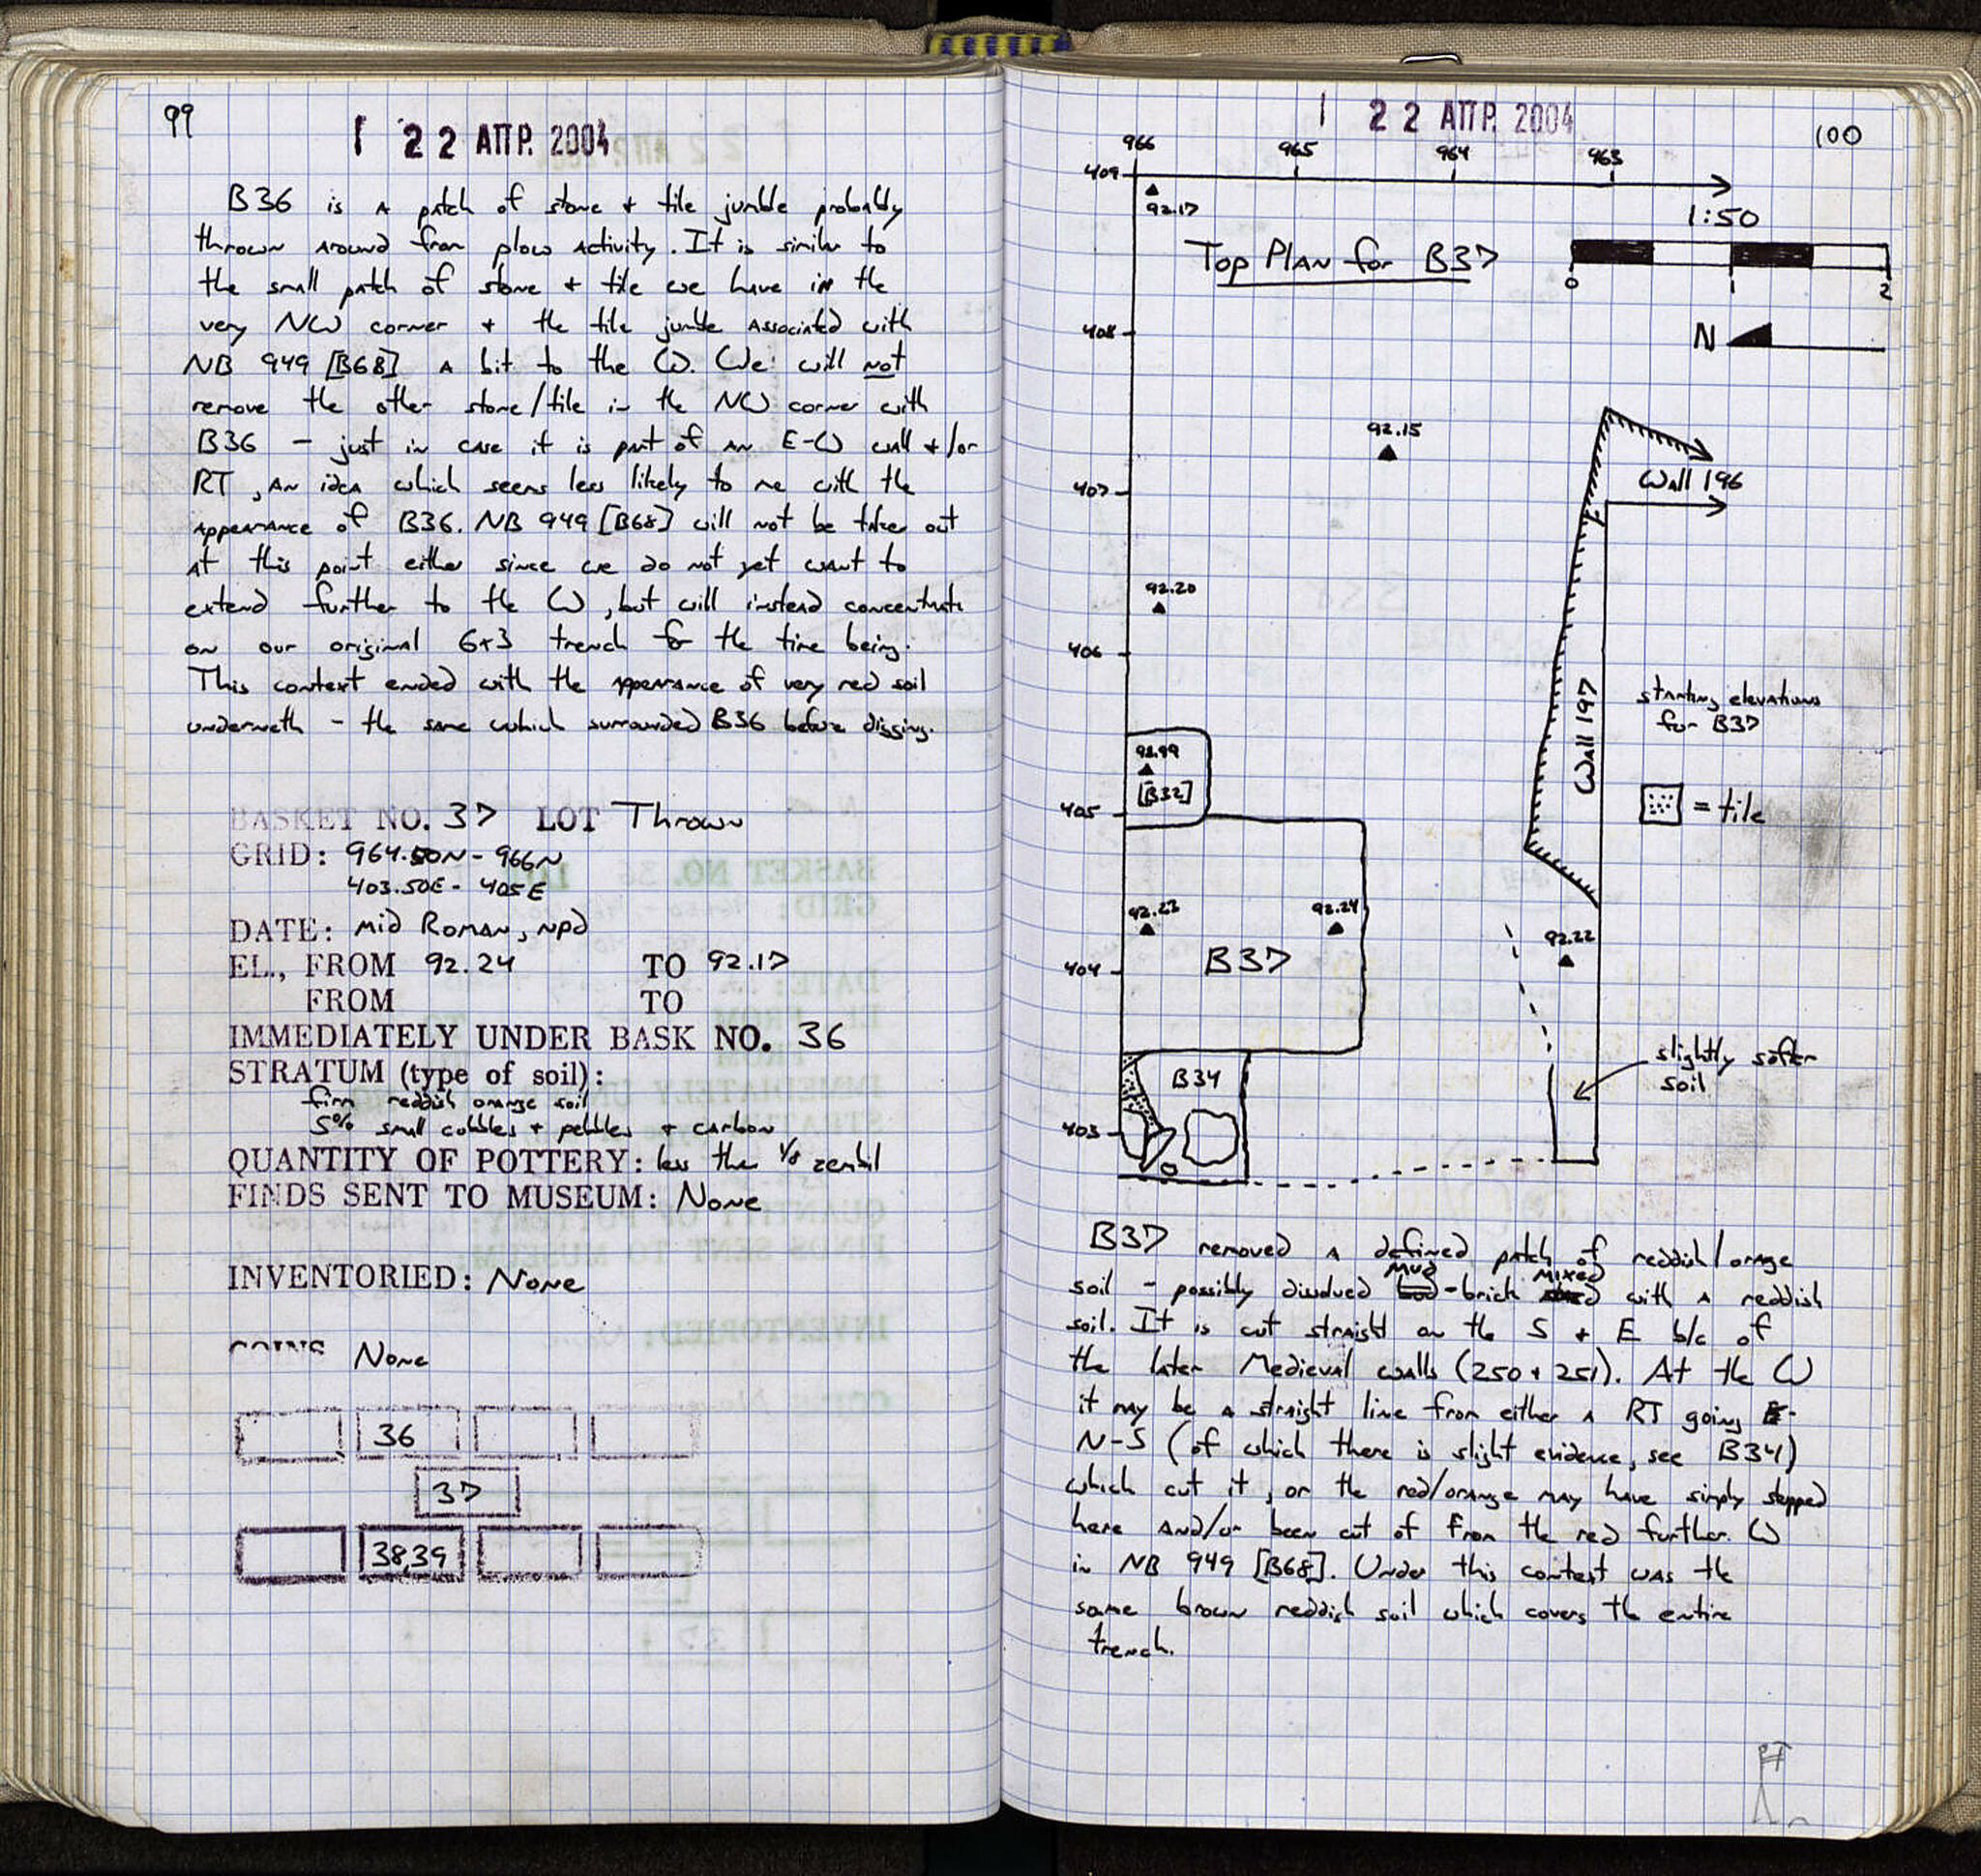 99
1 22 ΑΠΡ. 2004
B36 is a patch of stone + tile jumble probably
thrown around from plow activity. It is similar to
the small patch of stone + tile we have in the
very NW corner + the tile jumble associated with
NB 949 [B68] a bit to the W. We will not
remove the other stone/tile in the NW corner with
B36 - just in case it is part of an E-W wall +/or
RT, an idea which seems less likely to me with the
appearance of B36. NB 949 [B68] will not be taken out
at this point either since we do not yet want to
extend further to the W, but will instead concentrate
on our original 6x3 trench for the time being.
This context ended with the appearance of very red soil
underneth - the same which surrounded B36 before digging.
BASKET NO. 37 LOT Thrown
GRID: 964.50N - 966N
403.50E - 405E
DATE: mid Roman, npd
EL., FROM 92.24 TO 92.17
FROM TO
IMMEDIATELY UNDER BASK NO. 36
STRATUM (type of soil):
firm reddish orange soil
5% small cobbles + pebbles + carbon
QUANTITY OF POTTERY: less the 1/8 zembil
FINDS SENT TO MUSEUM: None
INVENTORIED: None
COINS None
36
37
38,39
1 22 ΑΠΡ. 2004
100
966 965 964 963
409
92.17
1:50
Top Plan for B37
0 1 2
408
N
92.15
407
Wall 196
92.20
406
Wall 197
starting elevations
for B37
92.99
[B32]
405
= tile
92.23
92.24
92.22
404
B37
slightly softer
soil
B34
403
B37 removed a defined patch of reddish/orage
soil - possibly disolved mud-brick mixed with a reddish
soil. It is cut straight on the S + E b/c of
the later Medieval walls (250 + 251). At the W
it may be a straight line from either a RT going
N-S (of which there is slight evidence, see B34)
which cut it, or the red/orange may have simply stopped
here and/or been cut of from the red further W
in NB 949 [B68]. Under this context was the
same brown reddish soil which covers the entire
trench.